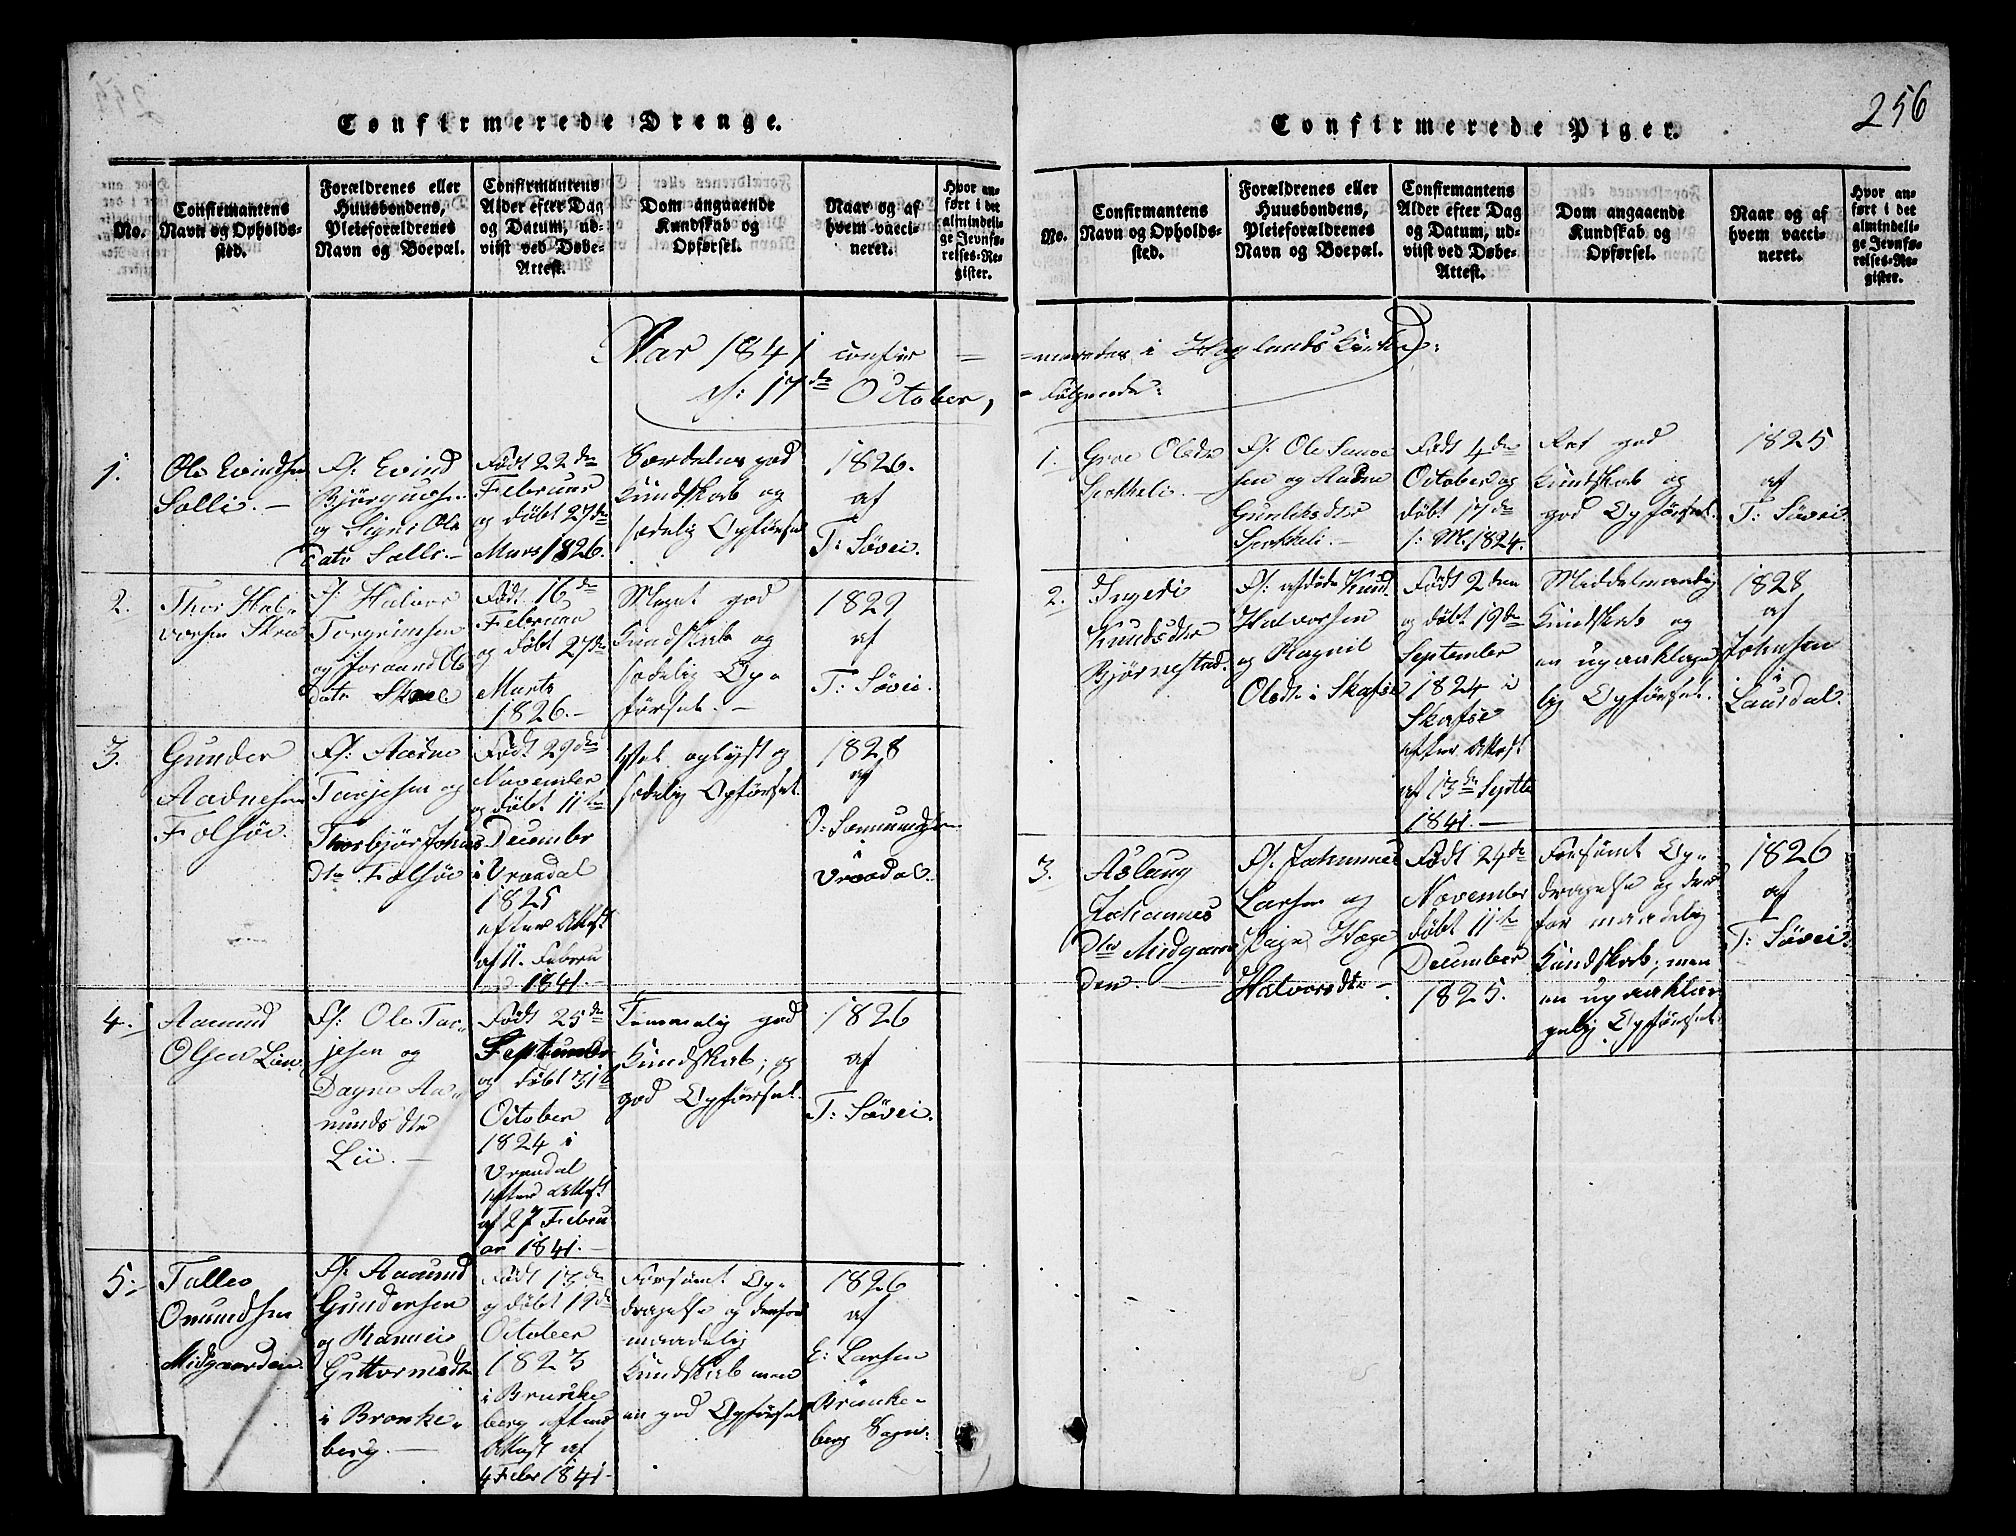 256
Confirmerede Drenge.
No.
Confirmantens
Navn og Opholds-
sted.
Forældrenes eller
Huusbondens,
Pleieforældrenes
Navn og Boepæl.
Confirmantens
Alder efter Dag
og Datum, ud-
viist ved Døbe-
Attest.
Dom angaaende
Kundskab og
Opførsel.
Naar og af
hvem vacci-
neret.
Hvor an-
ført i det
almindeli-
ge Jevnfø-
relses-Re-
gister.
Aar 1841 confir =
d: 17de October,
1.
Ole Evindsen
Solli. —
F: Evind
Bjørgusen
og Signe Ols
Datr Solli. —
Født 22de
Februar
og døbt 27de
Marts 1826.
Særdeles god
Kundskab og
sædelig Opførsel
1826.
af
T: Søvei.
2.
Thor Hal-
vorsen Skree
F: Halvor
Torgrimsen
og Joraand Ols
Datr Skree
Født 16de
Februar
og døbt 27de
Marts
1826. —
Meget god
Kundskab og
sædelig Op-
førsel. —
1829
af
T: Søvei.
3.
Gunder
Aadnesen
Folsøe
F: Aadne
Tarjesen og
Thorbjør Johns
dtr Folsøe
Født 29de
November
og døbt 11te
December
i Vraadal
1825
efter Attest
af 11. Febru
ar 1841. —
Vel oplyst og
sædelig Opførsel.
1828
af
O: Somundsen
i
Vraadal.
4.
Aamund
Olsen Lien
F: Ole Tar-
jesen og
Dagne Aa-
munds dtr
Lii. —
Født 25de
September
og døbt 31te
October
1824 i
Vraadal
efter Attest
af 27 Febru
ar 1841. —
Temmelig god
Kundskab; og
god Opførsel.
1826
af
T: Søvei.
5.
Tallev
Omundsen
Midgaarden
F: Aamund
Gundersen
og Ranvei
Guttormsdtr
i Brønke-
berg. —
Født 13de
og døbt 19de
October
1823
i Brunke
berg efter
Attest af
4 Febr 1841. —
Forsømt Op-
dragelse og derfor
maadelig
Kundskab men
en god Opførsel
1826
af
E: Larsen
Brønke-
berg Sogn.
Confirmerede Piger.
No.
Confirmantens
Navn og Opholds-
sted.
Forældrenes eller
Huusbondens,
Pleieforældrenes
Navn og Boepæl.
Confirmantens
Alder efter Dag
og Datum, ud-
viist ved Døbe-
Attest.
Dom angaaende
Kundskab og
Opførsel.
Naar og af
hvem vacci-
neret.
Hvor an-
ført i det
almindeli-
ge Jevnfø-
relses-Re-
gister.
= meredes i Høylands Kirke:
= Følgende:
1.
Groe Olsdtr
F: Ole
sen og Aadne
Gunleksdtr
Født 4de
October og
døbt 17de
s: M. 1824.
Ret god
Kundskab og
god Opførsel.
1825
af
T: Søvei.
2.
Ingeri
Knudsdtr
Bjørnestad.
F: afdøde Knud
Halvorsen
og Ragnil
Olsdtr i Skafse
Født 2den
og døbt 19de
September
1824 i
Skafse
efter Attest
af 13de Septb
1841. —
Middelmaadig
Kundskab og
en upaaklage
lig Opførsel.
1828
af
Johnsen
i
Laurdal.
3.
Aslaug
Johannes
dtr Midgaar
den. —
F: Johannes
Larsen og
Pige Hæge
Halvorsdtr —
Født 24de
November
døbt 11te
December
1825.
Forsømt Op-
dragelse og der
for maadelig
Kundskab; men
en upaaklag
gelig Opførsel
1826
af
T: Søvei.